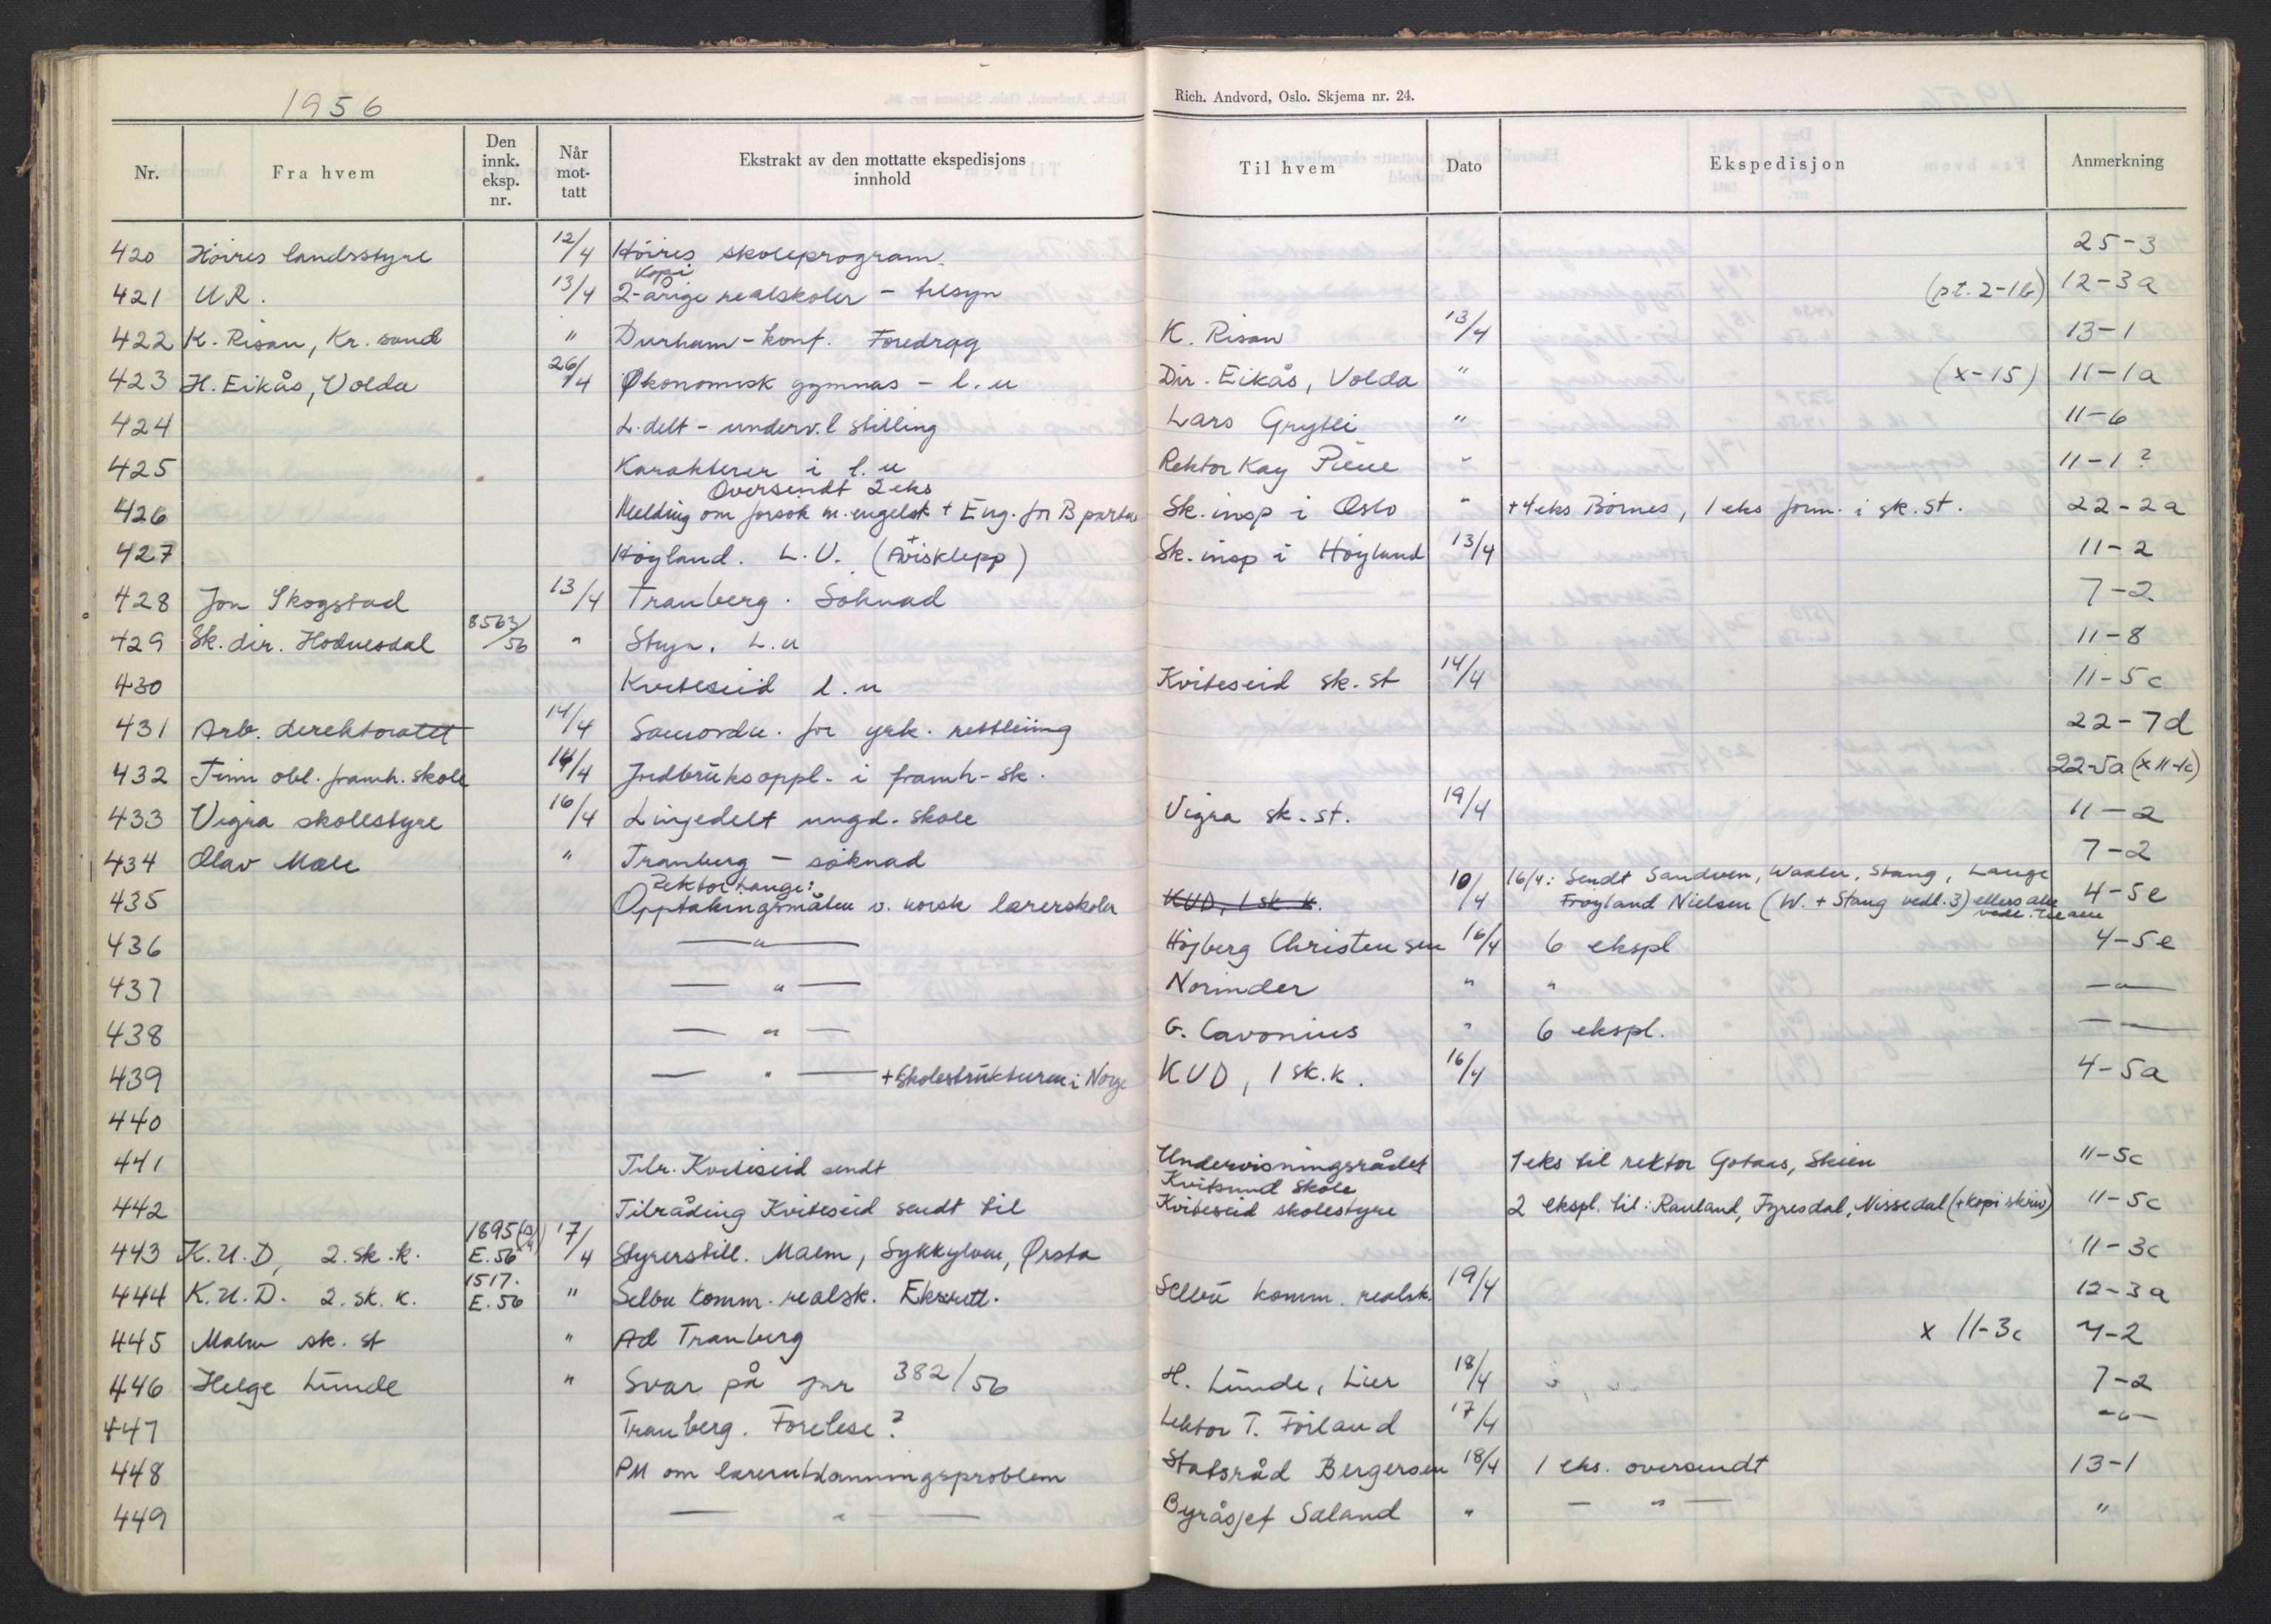 1956
Rich. Andvord, Oslo. Skjema nr. 24.
Nr. Fra hvem Den innk. eksp. nr. Når mot-tatt Ekstrakt av den mottatte ekspedisjons innhold Til hvem Dato Ekspedisjon Anmerkning
420 Höires landsstyre 12/4 Höires skoleprogram. 25-3
Kopi
421 U.R. 13/4 2-årige realskoler - tilsyn (pt. 2-1b) 12-3a
422 K. Risan, Kr. sund " Durham-konf. Foredrag K. Risan 13/4 13-1
423 H. Eikås, Volda 26/4 Økonomisk gymnas - l.u Dir. Eikås, Volda " (x-15) 11-1a
424 L.delt - underv.l stilling Lars Grytli " 11-6
425 Karakterer i l.u Rektor Kay Piene " 11-1?
Oversendt 2 eks
426 Melding om forsök m. engelsk + Eng. for B parta Sk.insp i Oslo " +4eks Börnes, 1 eks form. i sk.st. 22-2a
427 Höyland. L.U. (+Avisklepp) Sk.insp i Höyland 13/4 11-2
428 Jon Skogstad 13/4 Tranberg. Söknad 7-2
429 Sk.dir. Hodnesdal 8563/56 " Stryn. L.u 11-8
430 Kviteseid l.u Kviteseid sk.st 14/4 11-5c
431 Arb. direktoratet 14/4 Samordn. for yrk. rettleiing 22-7d
432 Finn obl. framh. skole 14/4 Jordbruksoppl. i framh-sk. 22-5a (x 11-1c)
433 Vigra skolestyre 16/4 Linjedelt ungd. skole Vigra sk.st. 19/4 11-2
434 Olav Mæle " Tranberg - söknad 7-2
Rektor Lange: 16/4: Sendt Sandven, Waaler, Stang, Lange
435 Opptakingsmåten v. norsk lærerskoler KUD, 1 sk k. 10/4 Fröyland Nielsen (W. + Stang vedl. 3) ellers alle vedl. til alle 4-5e
436 — " — Höjberg Christensen 16/4 6 ekspl 4-5e
437 — " — Norinder " " — " —
438 — " — G. Cavonius " 6 ekspl. — —
439 — " — + Skolestrukturen i Norge KUD, 1 sk.k. 16/4 4-5a
440
441 Tilr. Kviteseid sendt Undervisningsrådet 1 eks til rektor Gotaas, Skien 11-5c
Kvitsund Skole
442 Tilråding Kviteseid sendt til Kviteseid skolestyre 2 ekspl. til: Rauland, Fyresdal, Nissedal (+kopi skriv) 11-5c
443 K.U.D, 2. sk.k. 1895 (13/4) E.56 17/4 Styrerstill. Malm, Sykkylven, Ørsta 11-3c
444 K.U.D. 2. sk. k. 1517. E.56 " Selbu komm. realsk. Eks.rett. Selbu komm. realsk. 19/4 12-3a
445 Malm sk. st " Ad Tranberg x 11-3c 7-2
446 Helge Lunde " Svar på jnr 382/56 H. Lunde, Lier 18/4 7-2
447 Tranberg. Forelese? Lektor T. Förland 17/4 -"-
448 PM om lærerutdanningsproblem Statsråd Bergersen 18/4 1 eks. oversendt 13-1
449 — " — Byråsjef Saland " — " — "